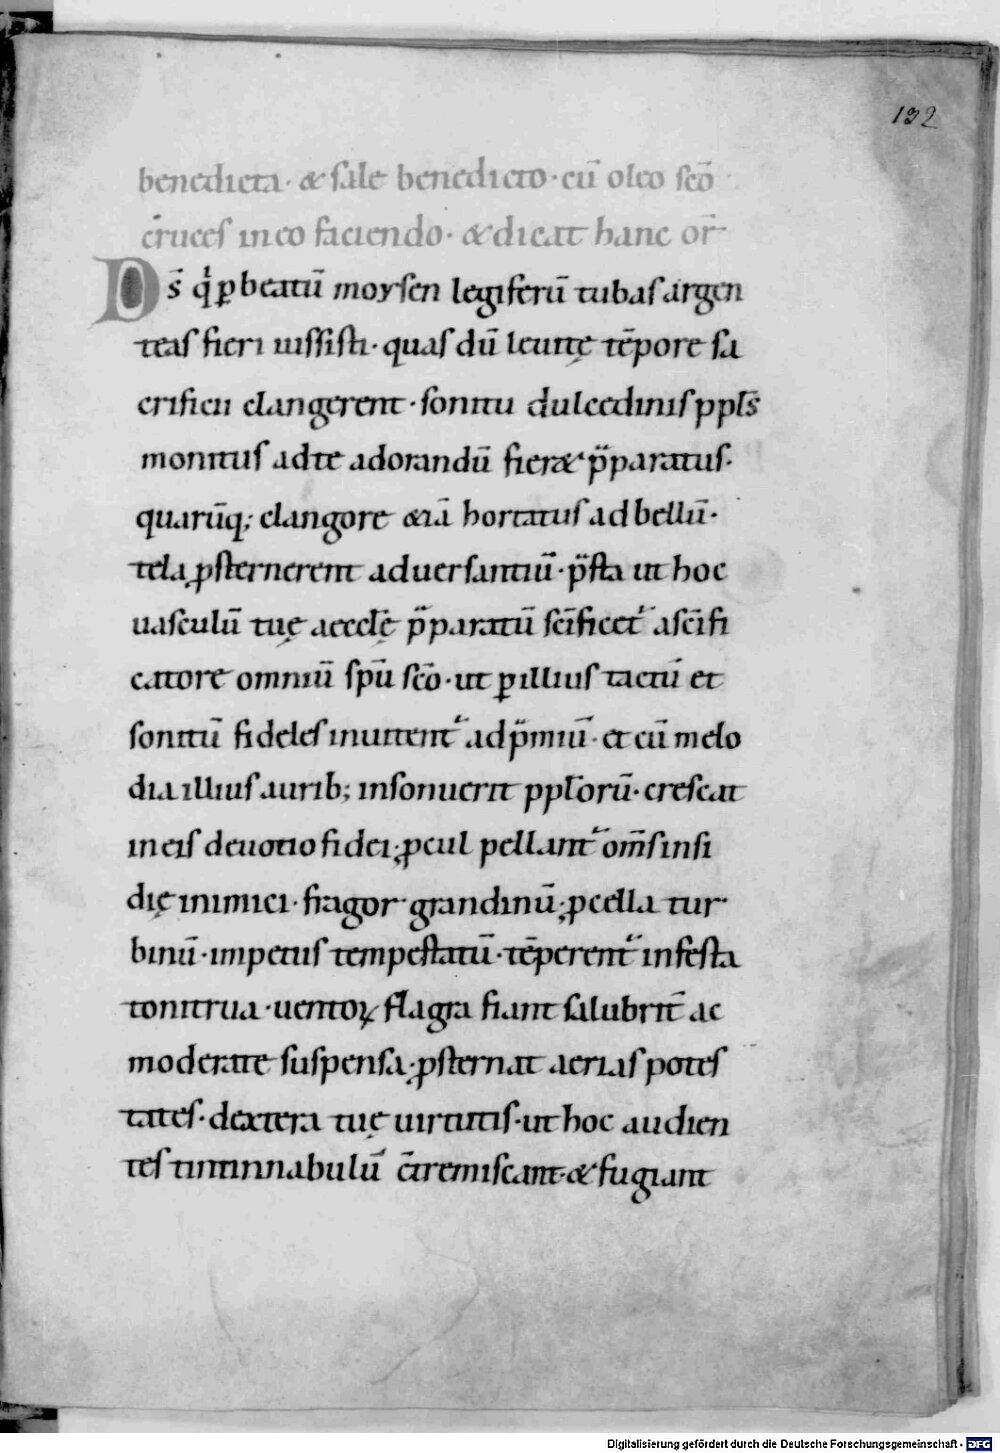 132
benedicta · & sale benedicto · cū oleo sc̄o
cruces in eo faciendo · & dicat hanc or̄
Ds̄ qͥ ꝑ beatū moysen legiferū tubas argen
teas fieri iussisti · quas dū leuitę tēpore sa
crificii clangerent · sonitu dulcedinis ppl̄s
monitus ad te adorandū fier& p̄paratus ·
quarūq; clangore &iā hortatus ad bellū ·
tela ꝓsternerent aduersantiū · p̄sta ut hoc
uasculū tuę aeccl̄ę p̄paratū sc̄ificet᷑ a sc̄ifi
catore omniū sp̄u sc̄o · ut ꝑ illius tactū et
sonitū fideles inuitent᷑ ad p̄miū · et cū melo
dia illius aurib; insonuerit ppl̄orū · crescat
in eis deuotio fidei · ꝓcul pellant᷑ om̄s insi
dię inimici · fragor grandinū · ꝓcella tur
binū · impetus tempestatū · tēperent᷑ infesta
tonitrua · uentoꝝ flagra fiant salubrit̄ ac
moderate suspensa · ꝓsternat aerias potes
tates · dextera tuę uirtutis · ut hoc audien
tes tintinnabulū c̄tremiscant · & fugiant
Digitalisierung gefördert durch die Deutsche Forschungsgemeinschaft - DFG